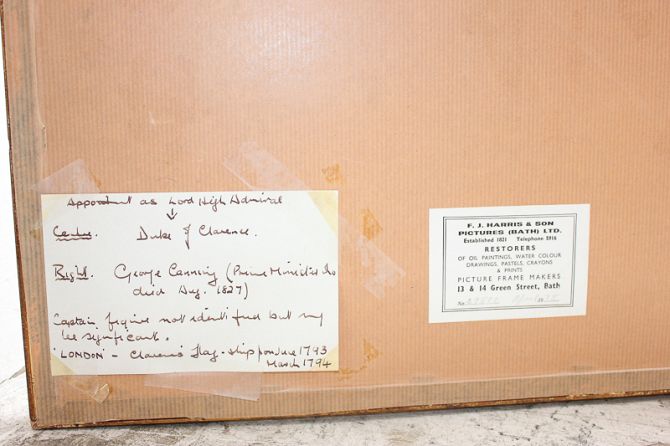 Appointment as Lord High Admiral
Centre. Duke of Clarence.
Right. George Canning (Prime Minister who
died Aug. 1827)
Captain figure not identified but may
be significant.
'LONDON' - Clarence' flag-ship 1793
March 1794
F. J. HARRIS & SON
PICTURES (BATH) LTD.
Established 1821 Telephone 5916
RESTORERS
OF OIL PAINTINGS, WATER COLOUR
DRAWINGS, PASTELS, CRAYONS
& PRINTS
PICTURE FRAME MAKERS
13 & 14 Green Street, Bath
No.